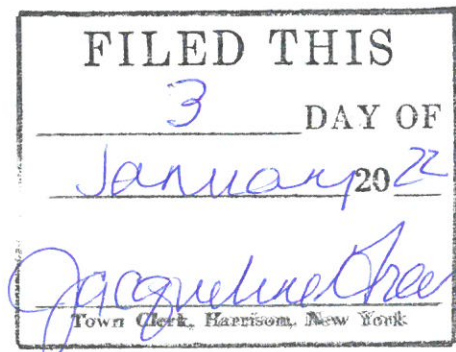 FILED THIS
3 DAY OF
January 2022
Jacqueline Greer
Town Clerk, Harrison, New York